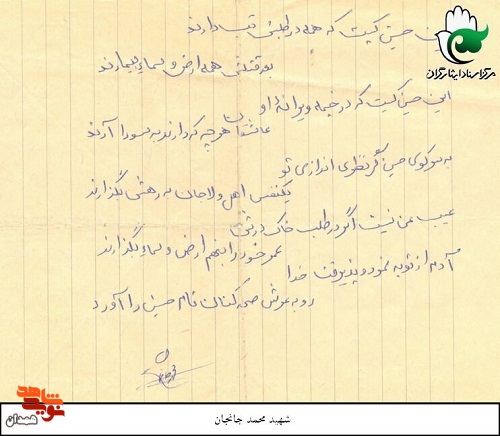 این حسین کیست که همه در طلبش تب دارند
بعد قتلش همه ارض و سماء بیمارند
این حسین کیست که در خیمه ویرانهٔ او
عاشقان هر چه که دارند به سودا آرند
به سر کوی حسین گر نظری اندازی تو
یکنفس اهل و لا جان به رهش بگذارند
عیب من نیست اگر در طلب خاک درش
عمر خود را بنهم ارض و سماء بگذارند
آدم از توبه نمود و پذیرفت خدا
رو به عرش صحه کنان نام حسین را آورد
مرکز اسناد ایثارگران
شهید محمد جانجان
نوید شاهد
همدان